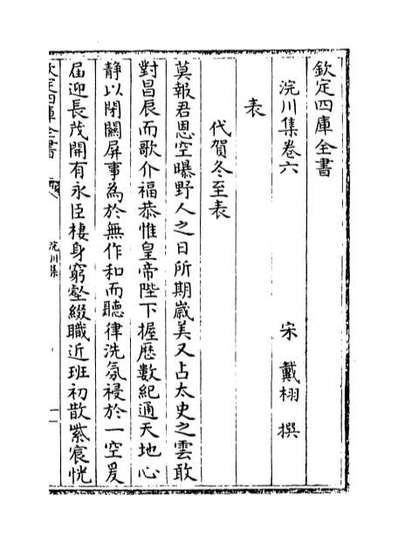 欽定四庫全書
浣川集卷六
宋 戴栩 撰
表
代賀冬至表
莫報君恩空曝野人之日所期嵗美又占太史之雲敢
對昌辰而歌介福恭惟皇帝陛下握厯數紀通天地心
静以閉關屏事為於無作和而聽律洗氛祲於一空爰
屆迎長茂開有永臣棲身窮壑綴職近班初散紫宸恍
欽定四庫全書
浣川集
一